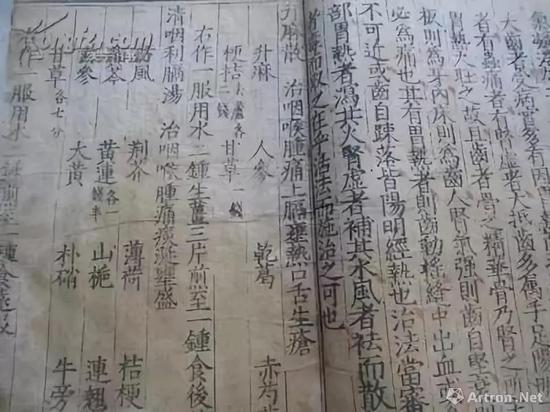 齒者受病實多有因
者有蟲痛者大抵齒多傳手足陽
胃熱大壯之故且齒者骨之精華骨乃腎之
根則為牙肉床則為齒人腎氣强則齒自堅
必為痛也其有胃熱者則齒動搖縫中出血或
不可近或齒自踈落皆陽明經熱也治法當審
部胃熱者瀉其火腎虛者補其水風者祛而散
而取之在乎活法而施治之可也
升麻散 治咽喉腫痛上膈壅熱口舌生瘡
升麻 人參 乾葛 赤芍
桔梗 甘草
右作一服用水二鍾生薑三片煎至一鍾食後
清咽利膈湯 治咽喉腫痛痰涎壅盛
防風 荊芥 薄荷 桔梗
黃芩 黃連各一錢半 山梔 連翹
玄參 大黃 朴硝 牛旁
甘草各七分
右作一服用水二鍾煎至一鍾食遠
Artron.Net